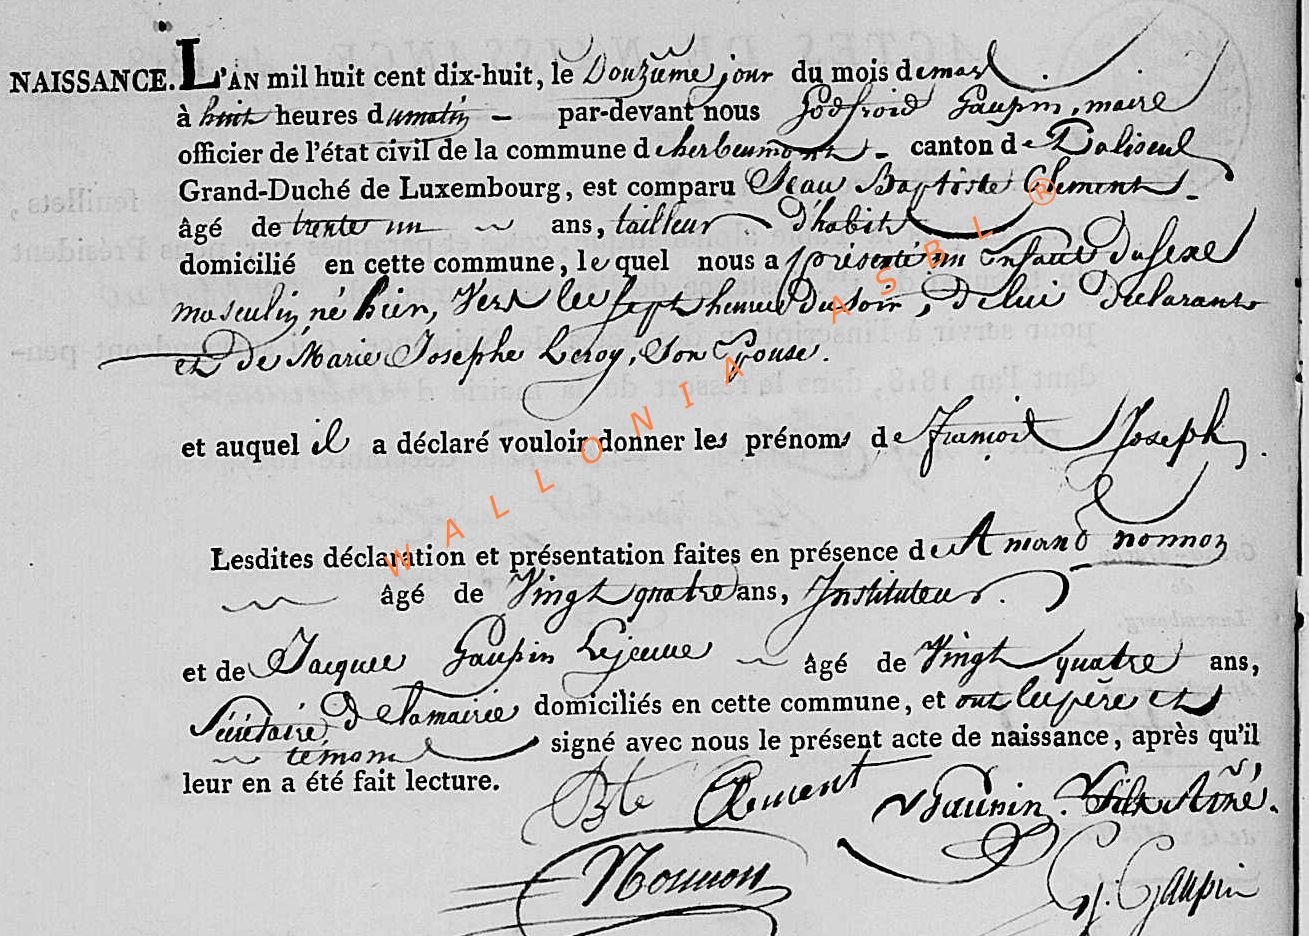 NAISSANCE. L'AN mil huit cent dix-huit, le Douzieme jour du mois de mars
à huit heures du matin — par-devant nous Godfroid Gaupin, maire
officier de l'état civil de la commune d'herbeumont - canton de Paliseul
Grand-Duché de Luxembourg, est comparu Jean Baptiste Clement
âgé de trente un ans, tailleur d'habit
domicilié en cette commune, lequel nous a présenté un Enfant du sexe
masculin, né hier, Vers les sept heures du soir, de lui declarant
et de Marie Josephe Leroy, Son Epouse.
et auquel il a déclaré vouloir donner les prénoms de françois Joseph.
Lesdites déclaration et présentation faites en présence de Amand nonnon
âgé de Vingt quatre ans, Instituteur.
et de Jacques Gaupin Lejeune âgé de Vingt quatre ans,
Sécrétaire de la mairie domiciliés en cette commune, et ont le père et
témoins signé avec nous le présent acte de naissance, après qu'il
leur en a été fait lecture.
Bte Clement Gaupin
Nonnon G. Gaupin
WALLONIA ASBL ®